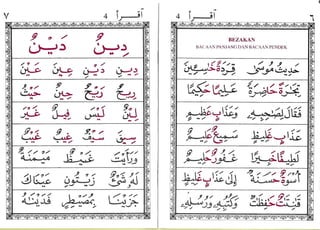 ٦
اقرأ 4
BEZAKAN
BACAAN PANJANG DAN BACAAN PENDEK
حَدِيثُ مُوسَى قِرَدَةً خَاسِئِينَ
تِجَارَةً حَاضِرَةً عَلِيمًا حَكِيمًا
فَقَالَ لِصَاحِبِهِ وَعَذَابٍ عَظِيمٍ
عَذَابٍ غَلِيظٍ سَمِيعٌ عَلِيمٌ
لَطِيفًا خَبِيرًا غَفُورٌ حَلِيمٌ
أُسْوَةٌ حَسَنَةٌ إِلَى عَذَابٍ غَلِيظٍ
قَانِتَاتٌ حَافِظَاتٌ وَكُتُبِهِ وَرُسُلِهِ
٧
اقرأ 4
دِينٌ دَيْنٌ
دِينٍ دَيْنٍ عِينٌ عَيْنٌ
رِيحٌ رَيْحٌ حِينٌ حَيْثُ
لِينٌ لَيْسَ فِيلٌ غَيْرَ
سِيقَ سَيْفٌ غِيبٌ غَيْبٌ
وَرَأَيْتَ غَيْظٌ مَيْمَنَةٌ
لَهُ شَيْءٌ زَيْتُونٍ عَيْنَاكَ
جَزَيْنَا بِمُصَيْطِرٍ فَدَيْنَاهُ